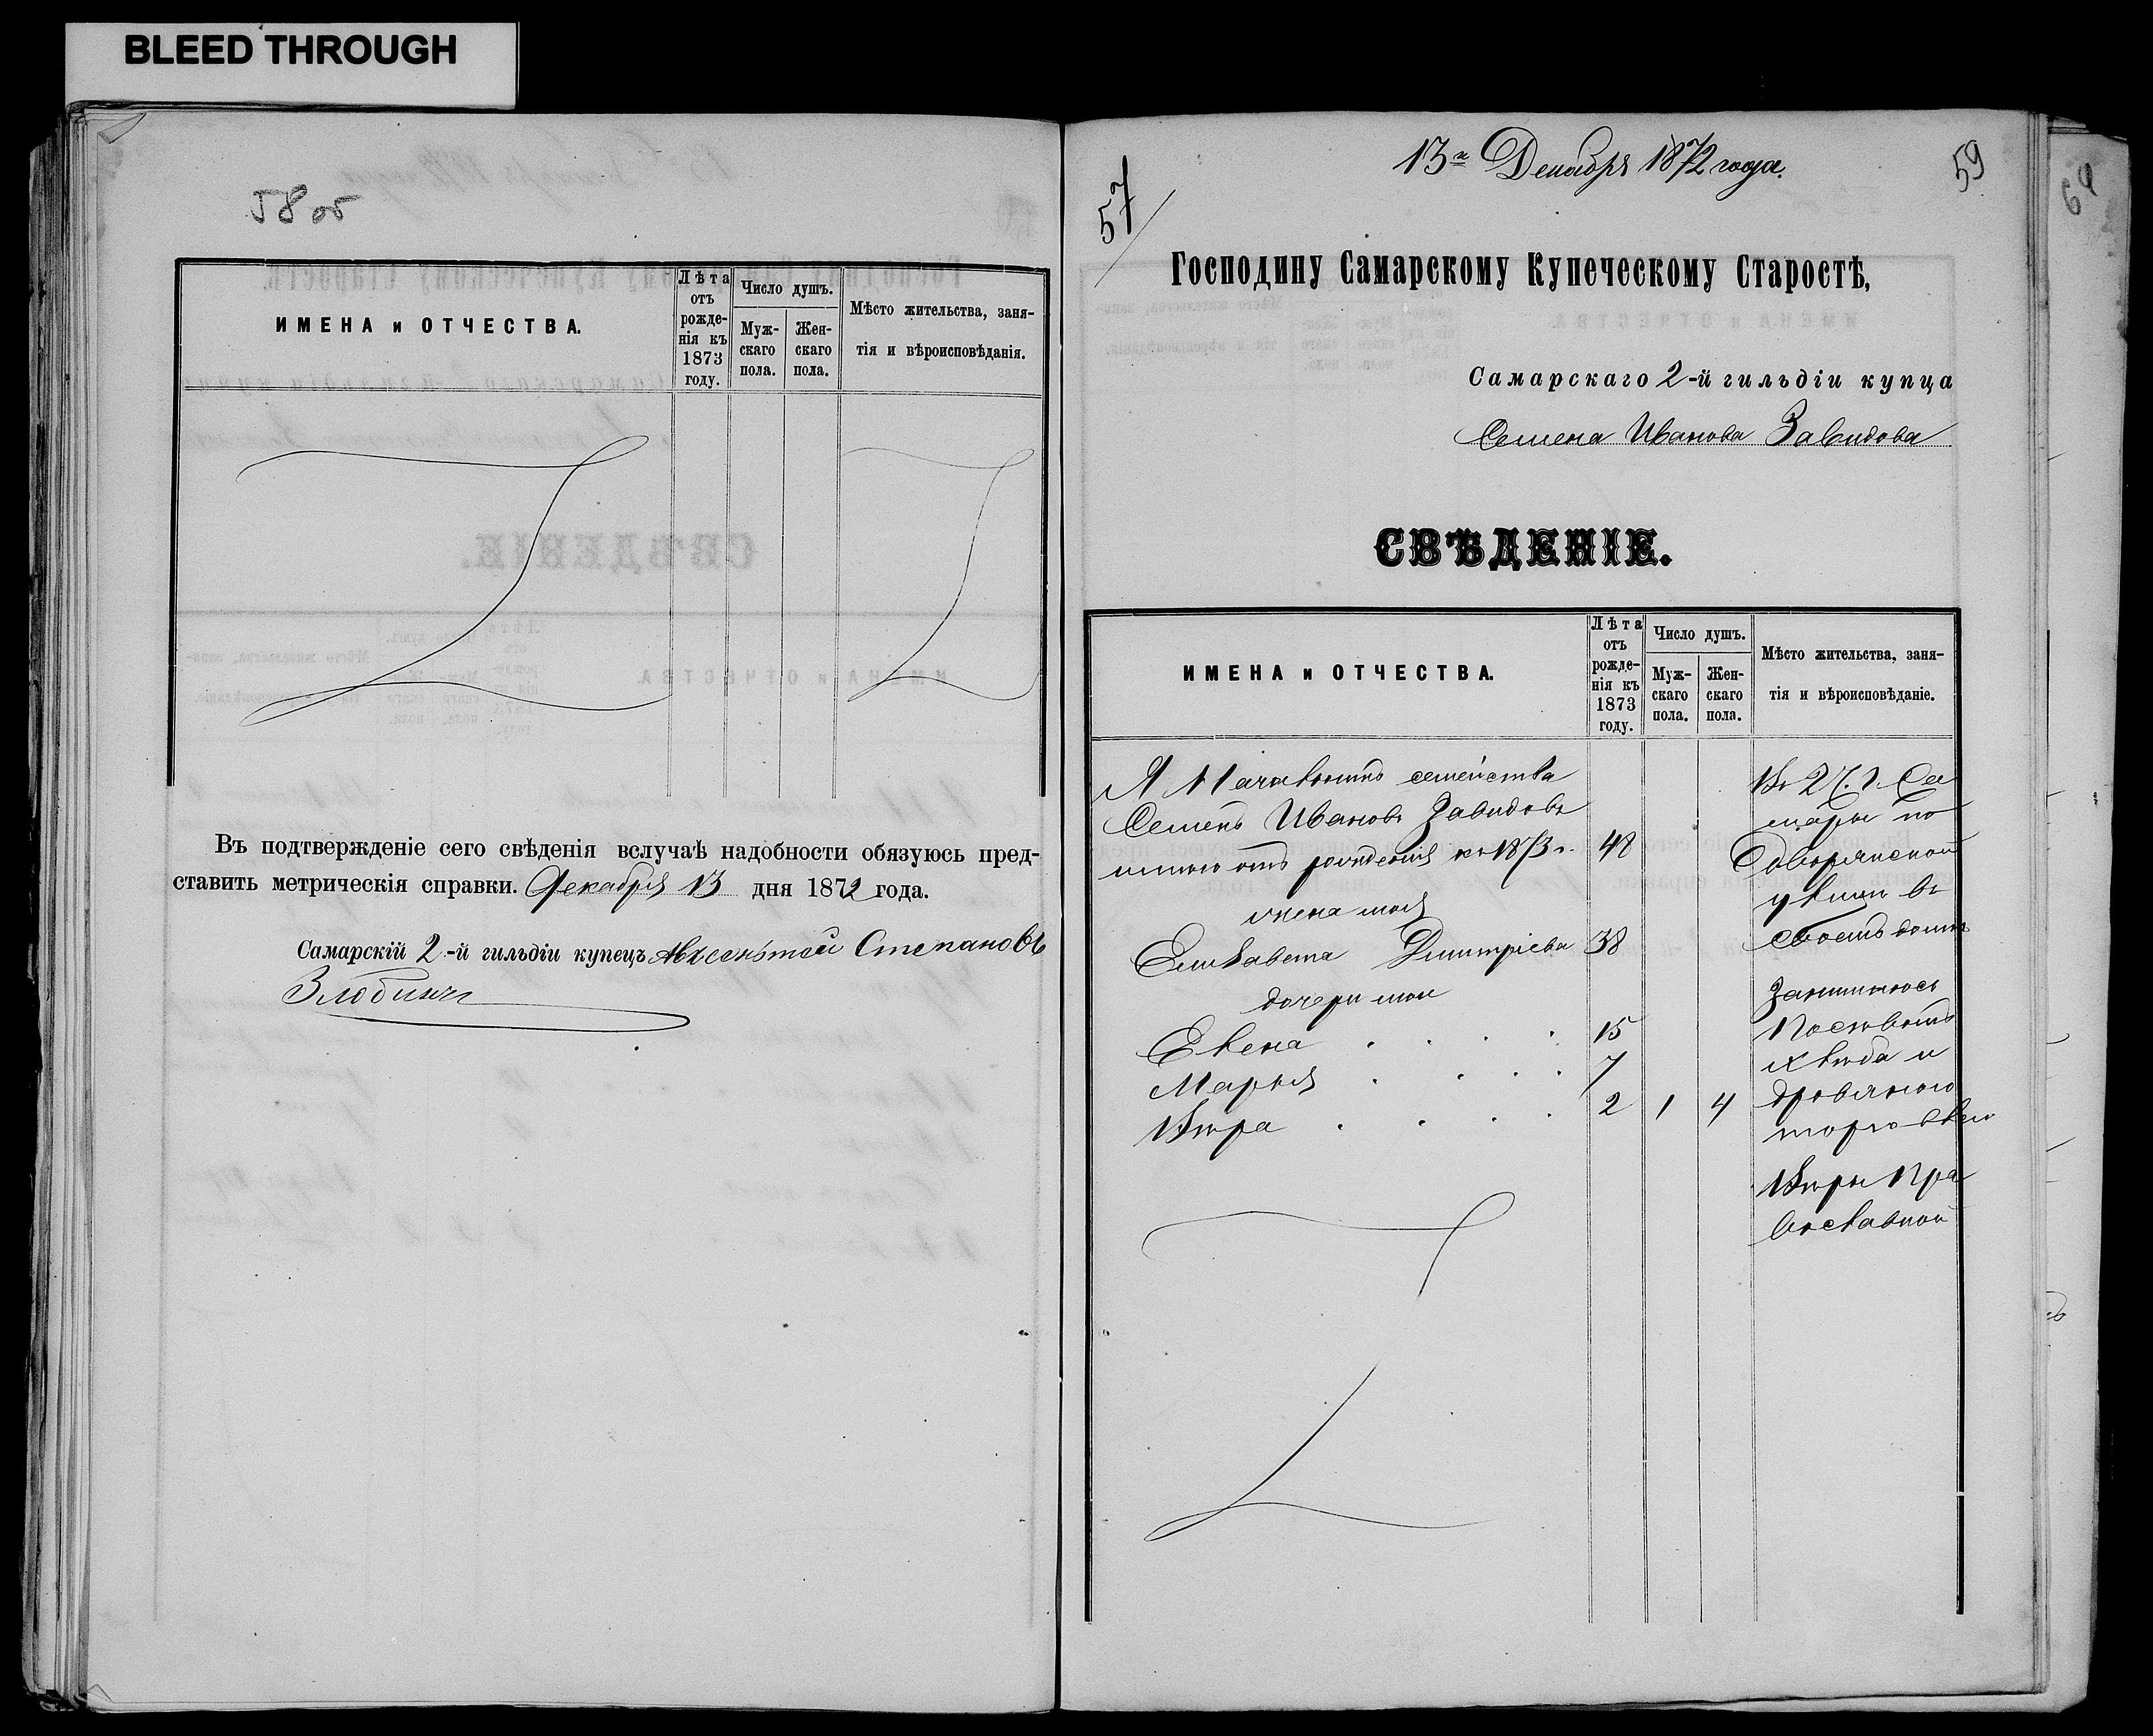 BLEED THROUGH
58 об
ИМЕНА и ОТЧЕСТВА.
Лѣта отъ рожденія къ 1873 году.
Число душъ.
Мужскаго пола.
Женскаго пола.
Мѣсто жительства, занятія и вѣроисповѣданія.
Въ подтвержденіе сего свѣденія вслучаѣ надобности обязуюсь пред-
ставить метрическія справки. Декабря 13 дня 1872 года.
Самарскій 2-й гильдіи купецъ Авксентей Степановъ
Злобинъ
13го Декабря 1872 года.
59
57
60
Господину Самарскому Купеческому Старостѣ,
Самарскаго 2-й гильдіи купца
Семена Иванова Завидова
СВѢДЕНІЕ.
ИМЕНА и ОТЧЕСТВА.
Лѣта отъ рожденія къ 1873 году.
Число душъ.
Мужскаго пола.
Женскаго пола.
Мѣсто жительства, занятія и вѣроисповѣданіе.
Я Начальникъ семейства
Семенъ Ивановъ Завидовъ
имѣю отъ рожденія къ 1873 г. 48
жена моя
Елизавета Димитріева 38
дочери мои
Елена 15
Марья 7
Вѣра 2 1 4
Въ 2 ч. г. Са
мары по
Дворянской
улицѣ въ
своемъ домѣ
Занимаюсь
Посѣвомъ
хлѣба и
дровяною
торговлею
Вѣры Пра
вославной